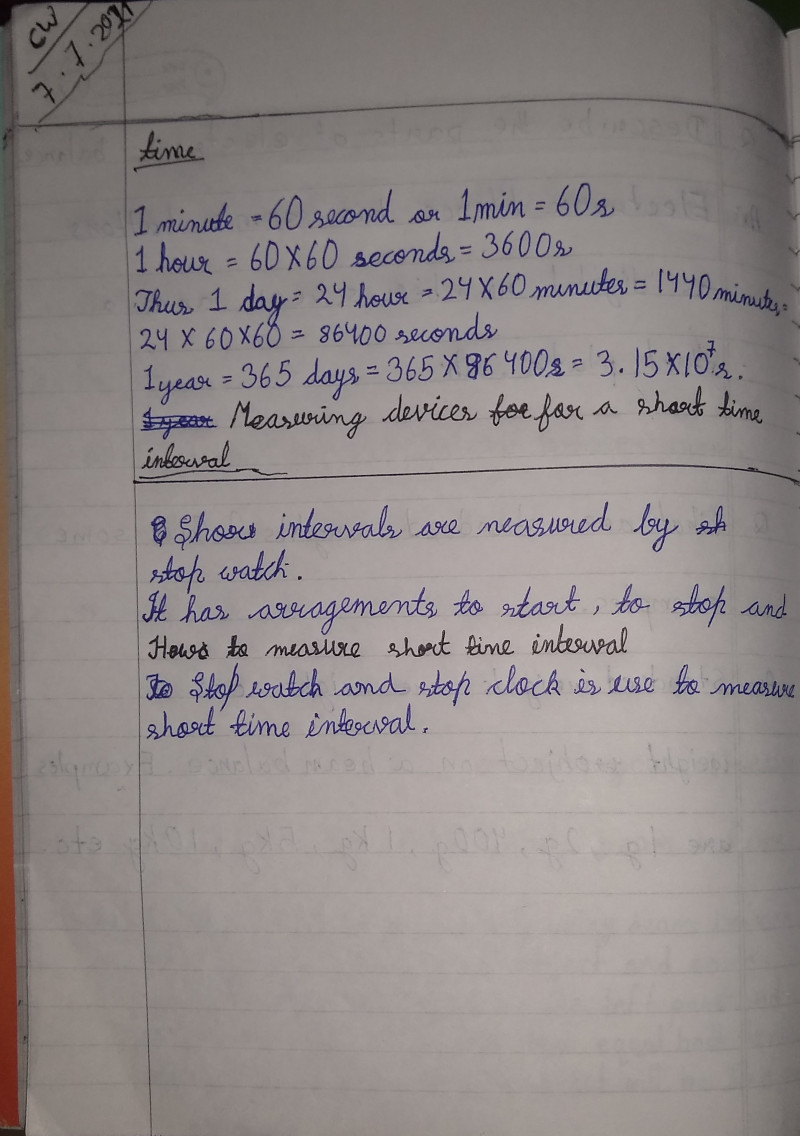 CW
7.7.2021
time
1 minute = 60 second or 1 min = 60s
1 hour = 60×60 seconds = 3600s
Thus 1 day = 24 hour = 24×60 minutes = 1440 minutes =
24 × 60×60 = 86400 seconds
1 year = 365 days = 365 × 86400s = 3.15×10⁷s.
1 year Measuring devices for for a short time
interval
Short intervals are neasured by sh
stop watch.
It has arragements to start, to stop and
How to measure short time interval
To Stop watch and stop clock is use to measure
short time interval.